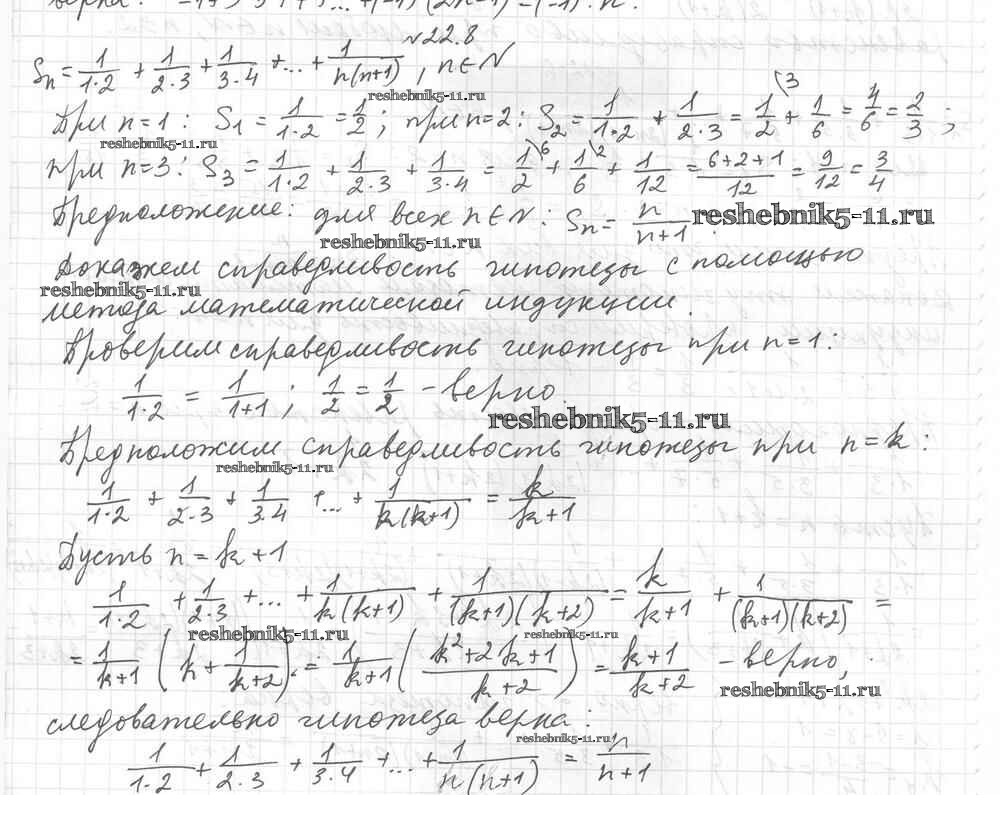 верна: -1+3-5+7-9...+(-1)ⁿ(2n-1)=(-1)ⁿ·n.
№22.8
Sₙ = 1/(1·2) + 1/(2·3) + 1/(3·4) + ... + 1/(n(n+1)), n∈N
reshebnik5-11.ru
При n=1: S₁ = 1/(1·2) = 1/2; при n=2: S₂ = 1/(1·2) + 1/(2·3) = 1/2 + 1/6 = 4/6 = 2/3;
reshebnik5-11.ru
при n=3: S₃ = 1/(1·2) + 1/(2·3) + 1/(3·4) = 1/2 + 1/6 + 1/12 = (6+2+1)/12 = 9/12 = 3/4
Предположение: для всех n∈N: Sₙ = n/(n+1).
reshebnik5-11.ru
reshebnik5-11.ru
Докажем справедливость гипотезы с помощью
reshebnik5-11.ru
метода математической индукции.
Проверим справедливость гипотезы при n=1:
1/(1·2) = 1/(1+1); 1/2 = 1/2 - верно.
reshebnik5-11.ru
Предположим справедливость гипотезы при n=k:
reshebnik5-11.ru
1/(1·2) + 1/(2·3) + 1/(3·4) + ... + 1/(k(k+1)) = k/(k+1)
Пусть n=k+1
1/(1·2) + 1/(2·3) + ... + 1/(k(k+1)) + 1/((k+1)(k+2)) = k/(k+1) + 1/((k+1)(k+2)) =
reshebnik5-11.ru
reshebnik5-11.ru
= 1/(k+1) (k + 1/(k+2)) = 1/(k+1) ((k²+2k+1)/(k+2)) = (k+1)/(k+2) - верно,
reshebnik5-11.ru
следовательно гипотеза верна:
reshebnik5-11.ru
1/(1·2) + 1/(2·3) + 1/(3·4) + ... + 1/(n(n+1)) = n/(n+1)